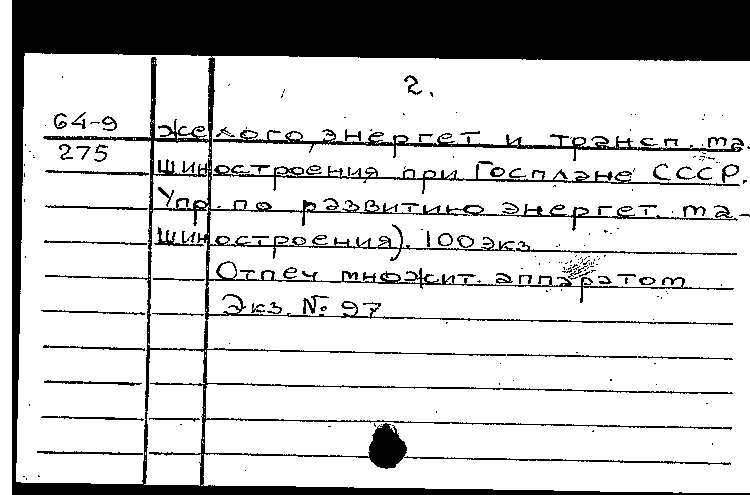 2.
64-9 желого, энергет и трансп. ма-
275 шиностроения при Госплане СССР.
Упр. по развитию энергет. ма-
шиностроения). 100 экз
Отпеч множит. аппаратом
Экз. № 97